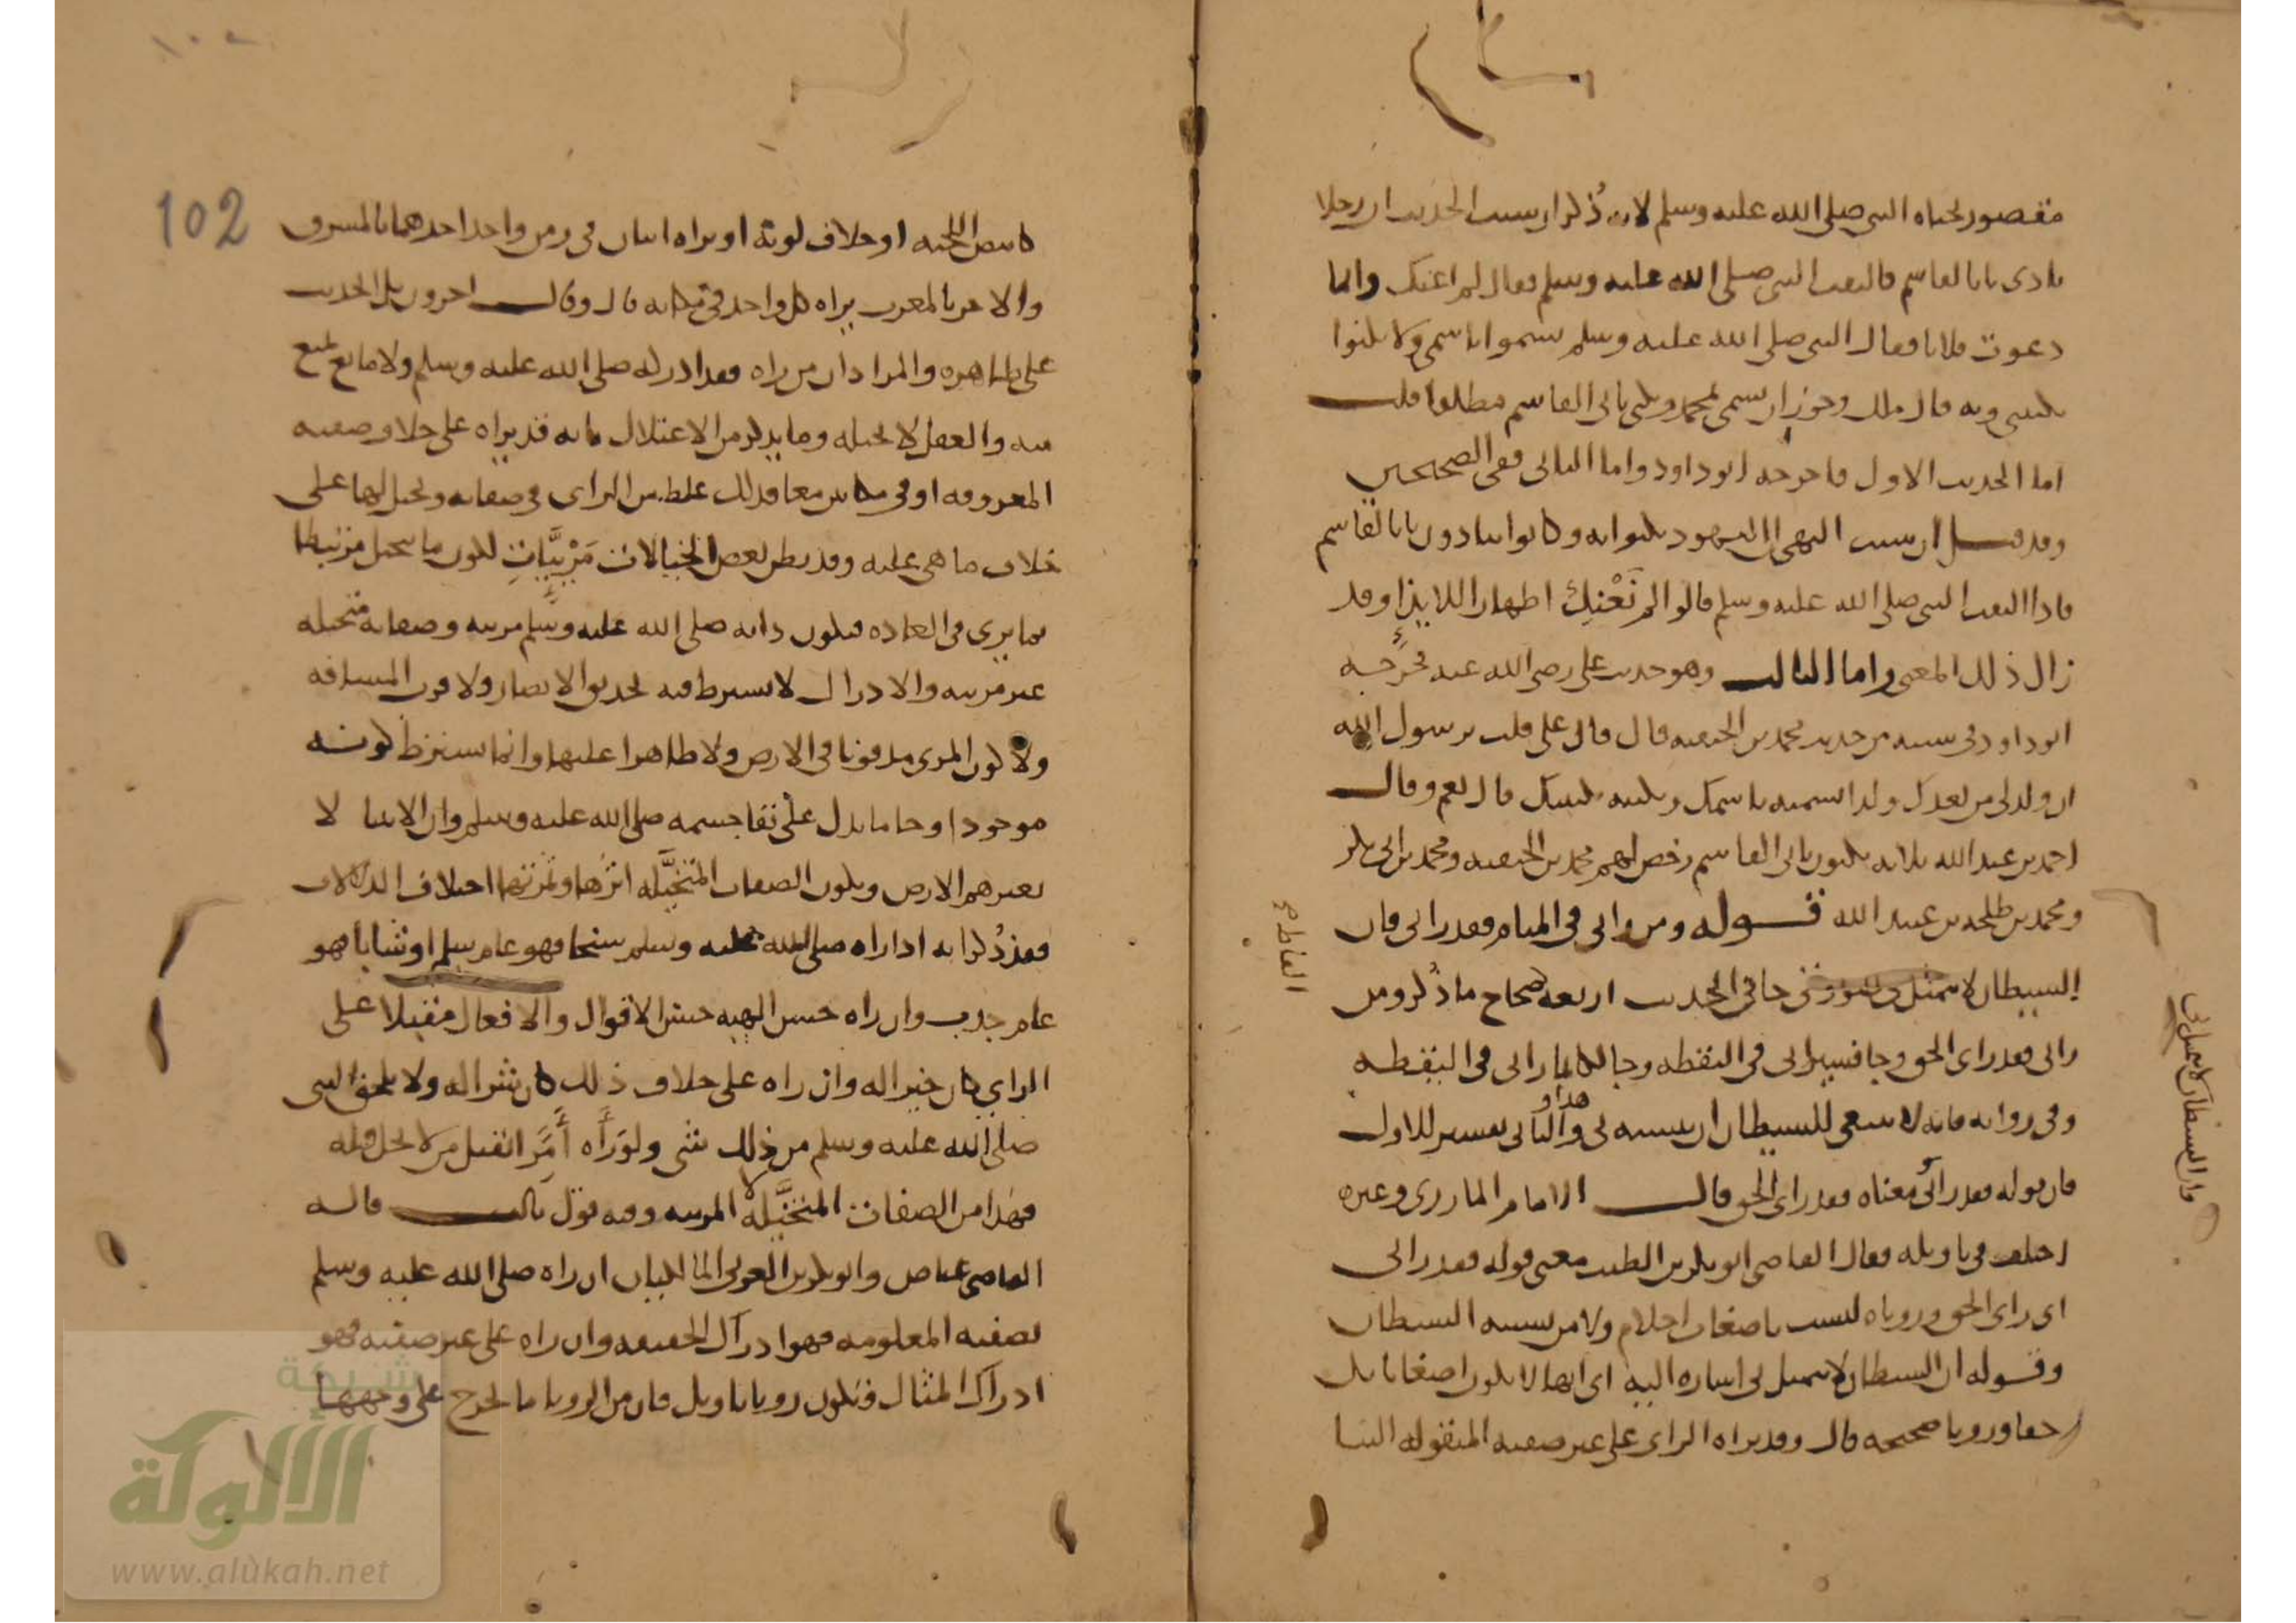 مقصور لحياه النبي صلى الله عليه وسلم لانه ذُكر ان سبب الحديث ان رجلا
نادى يابا القاسم فالتفت النبي صلى الله عليه وسلم فقال لم اعنك وانما
دعوت فلانا فقال النبي صلى الله عليه وسلم سموا باسمي ولا تكنوا
بكنيتي وبه قال ملك وجوز ان يسمى بمحمد ويكنى بابي القاسم مطلقا قلت
اما الحديث الاول فاخرجه ابو داود واما الثاني ففي الصحيحين
وقد قيل ان سبب النهي ان اليهود تكنوا به وكانوا ينادون يابا القاسم
فاذا التفت النبي صلى الله عليه وسلم قالوا لم نَعْنِكَ اظهارا للايذا وقد
زال ذلك المعنى واما الثالث وهو حديث علي رضي الله عنه فخرَّجه
ابو داود في سننه من حديث محمد بن الحنفيه قال قال علي قلت يرسول الله
ان ولد لي من بعدك ولد اسميه باسمك وبكنيه بكنيتك قال نعم وقال
احمد بن عبد الله ثلاثه تكنون بابي القاسم رخص لهم محمد بن الحنفيه ومحمد بن ابي بكر
ومحمد بن طلحه بن عبيد الله قوله ومن راني في المنام فقد راني فان
الشيطان لا يتمثل في صورتي جا في الحديث اربعه صحاح ما ذُكر ومن
راني فقد راى الحق وجا فسيراني في اليقظه وجا لكانما راني في اليقظه
وفي روايه فانه لا ينبغي للشيطان ان يتشبه بي والثاني تفسير للاول
هذا و
فان قوله فقد رآني معناه فقد راى الحق قال الامام المازري وغيره
اختلف في تاويله فقال القاضي ابو بكر بن الطيب معنى قوله فقد راني
اي راى الحق ورؤياه ليست باضغاث احلام ولا من تشبيه الشيطان
وقوله ان الشيطان لا يتمثل بي اشاره اليه اي انها لا تكون اضغاثا بل
حقا ورويا صحيحه قال وقد يراه الراى على غير صفته المنقوله الينا
القاطع
فان الشيطان لا يتمثل بي
102
كابيض اللحيه او خلاف لونه او يراه اثنان في زمن واحد احدهما بالمشرق
والاخر بالمغرب يراه كل واحد في مكانه قال وقال اخرون بل الحديث
على ظاهره والمراد ان من راه فقد ادركه صلى الله عليه وسلم ولا مانع يمنع
منه والعقل لا يحيله وما يذكر من الاعتلال بانه قد يراه على خلاف صفته
المعروفه او في مكانين معا فذلك غلط من الراى في صفاته وتخيل لها على
خلاف ما هي عليه وقد يظن بعض الخيالات مَرْئِيَّاتٍ لكون ما يتخيل مرتبطا
بما يرى في العاده فتكون ذاته صلى الله عليه وسلم مرئيه وصفاته متخيله
غير مرئيه والادراك لا يشترط فيه تحديق الابصار ولا قرب المسافه
ولا كون المرئ مدفونا في الارض ولا ظاهرا عليها وانما يشترط كونه
موجودا وجا ما يدل على بقا جسمه صلى الله عليه وسلم وان الانبيا لا
تغيرهم الارض وتكون الصفات المتخيَّله اثرها وثمرتها اختلاف الدلالات
فقد ذُكر انه اذا راه صلى الله عليه وسلم شيخا فهو عام سلم او شابا فهو
عام جدب وان راه حسن الهيه حسن الاقوال والافعال مقبلا على
الراي كان خيرا له وان راه على خلاف ذلك كان شرا له ولا يلحق النبي
صلى الله عليه وسلم من ذلك شي ولو رَآه أَمَرَ بقتل من لا يحل قتله
فهذا من الصفات المتخيَّله لا المرئيه وفيه قول ثالث قاله
القاضي عياض وابو بكر بن العربي المالكيان ان راه صلى الله عليه وسلم
بصفته المعلومه فهو ادراك الحقيقه وان راه على غير صفته فهو
ادراك المثال فتكون رويا تاويل فان من الرويا ما يخرج على وجهها
شبكة
الألوكة
www.alukah.net